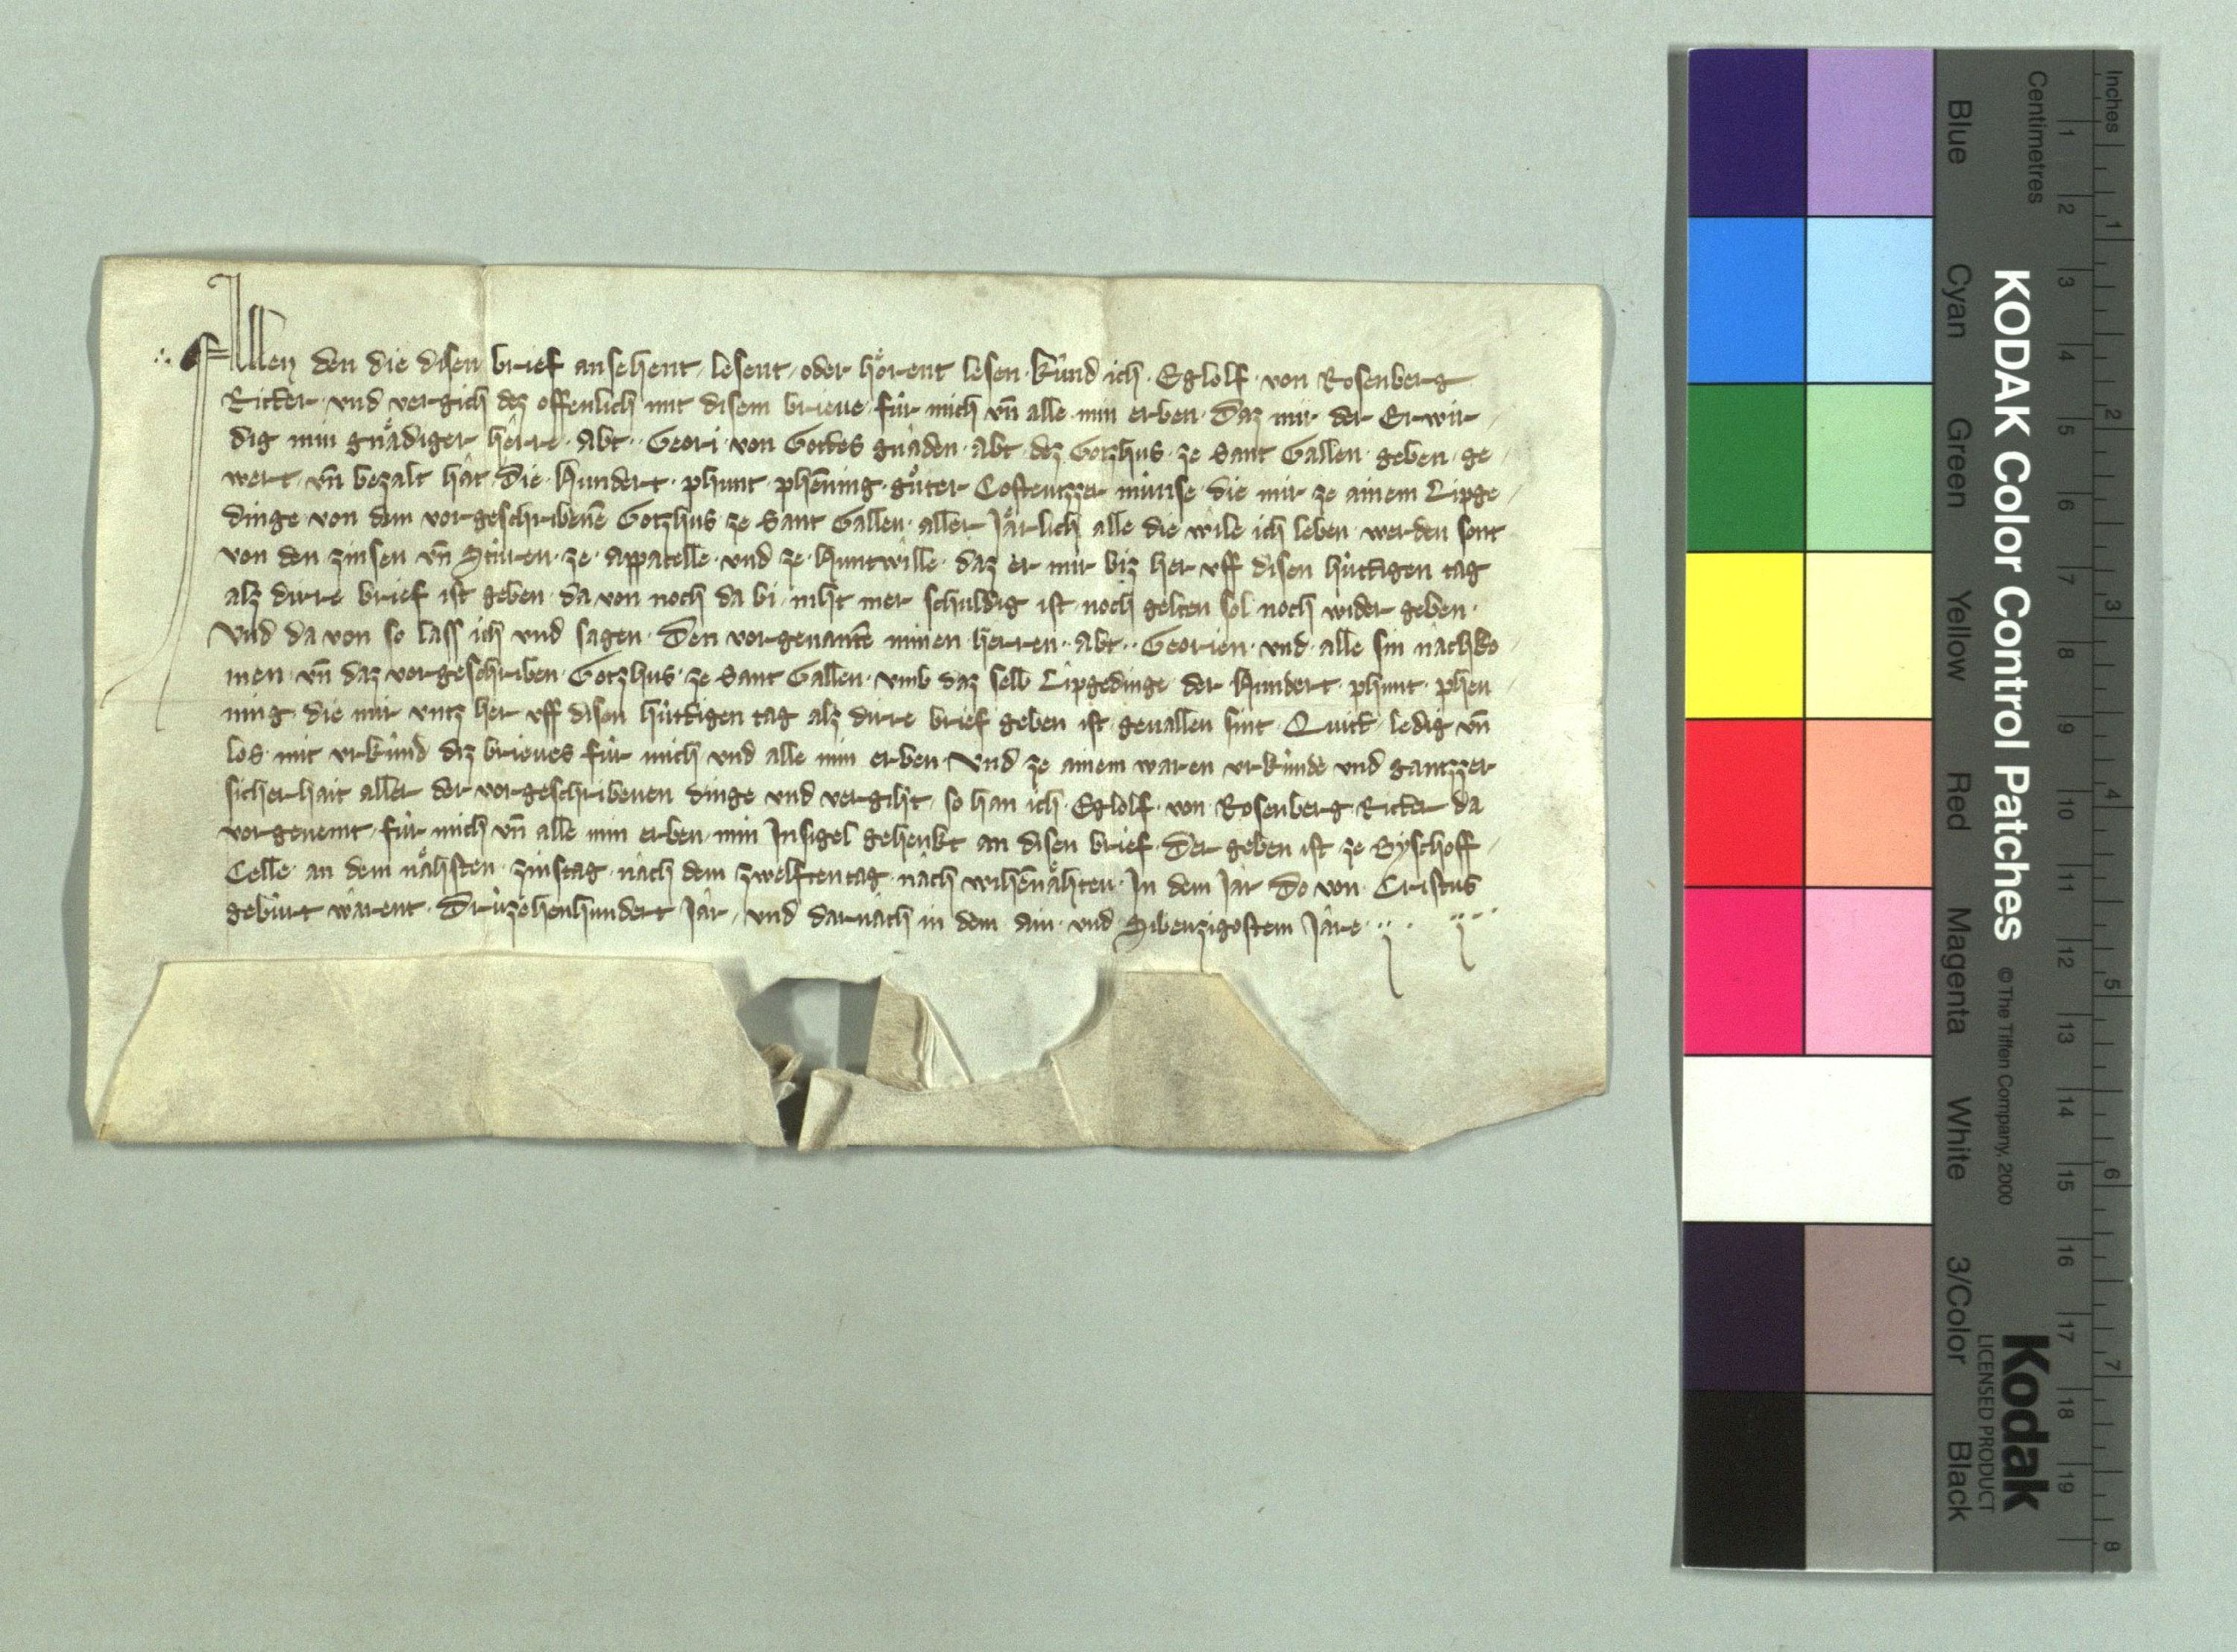 Allen den die disen brief ansehent, lesent, oder hörent lesen · künd ich · Eglolf · von Rosenberg
Ritter · vnd vergich dez offenlich mit disem brieue · für mich vn̄ alle min erben · Daz mir der Erwir
dig min gnädiger herre · Abt ·· Geori · von Gottes gnaden · abt · dez Gotzhus · ze Sant Gallen · geben · ge
wert · vn̄ bezalt hât · die · Hundert · phunt · phēning · gůter Costentzzer münse · die mir ze ainem Lipge
dinge · von dem vorgeschribenē Gotzhus · ze Sant Gallen · aller Järlich alle die wîle ich leben · werden sont
von den zinsen vn̄ Stüren · ze · appacelle · vnd · ze · Huntwille · daz er mir biz her vff disen hüttigen tag
alz dirre brief ist geben · da von noch da bi · niht mer schuldig ist · noch gelten sol · noch wider geben ·
Vnd da von so lass ich vnd sagen · Den vorgenantē minen herren ·· Abt ·· Georien · vnd · alle sin nâchko
men · vn̄ daz vorgeschriben · Gotzhus · ze Sant Gallen · vmb daz selb Lipgedinge · der Hundert · phunt · phen
ning · die mir vntz her vff disen hüttigen tag alz dirre brief geben ist · geuallen sint · Quitt · ledig vn̄
los · mit vrkünd diz brieues für mich vnd alle min erben · Vnd ze ainem waren vrkünde vnd gantzzer
sicherhait aller der vorgeschribenen dinge vnd vergiht, so han ich · Eglolf · von Rosenberg · Ritter da
vorgenemt · für mich vn̄ alle min erben · min Insigel gehenkt an disen brief · Der geben ist · ze Byschoff
Celle · an dem nähsten · zinstag · nâch dem zwelften tag · nâch wihēnähten · In dem Jâr Do von · Cristus
gebürt wârent · Drüzehenhundert Jâr, vnd darnâch in dem ain · vnd Sibenzigostem Jâre ·
Inches
Centimetres
1 2 3 4 5 6 7 8 9 10 11 12 13 14 15 16 17 18 19
1 2 3 4 5 6 7 8
KODAK Color Control Patches © The Tiffen Company, 2000
Kodak
LICENSED PRODUCT
Blue Cyan Green Yellow Red Magenta White 3/Color Black